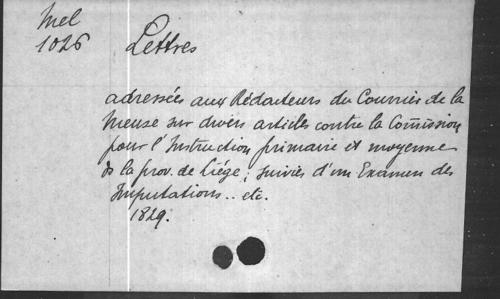 Mel
1026
Lettres
adressées aux Rédacteurs du Courrier de la
Meuse sur divers articles contre la Com̃ission
pour l'Instruction primaire et moyenne
de la prov. de Liége; suivies d'un Examen des
Imputations .. etc.
1829.